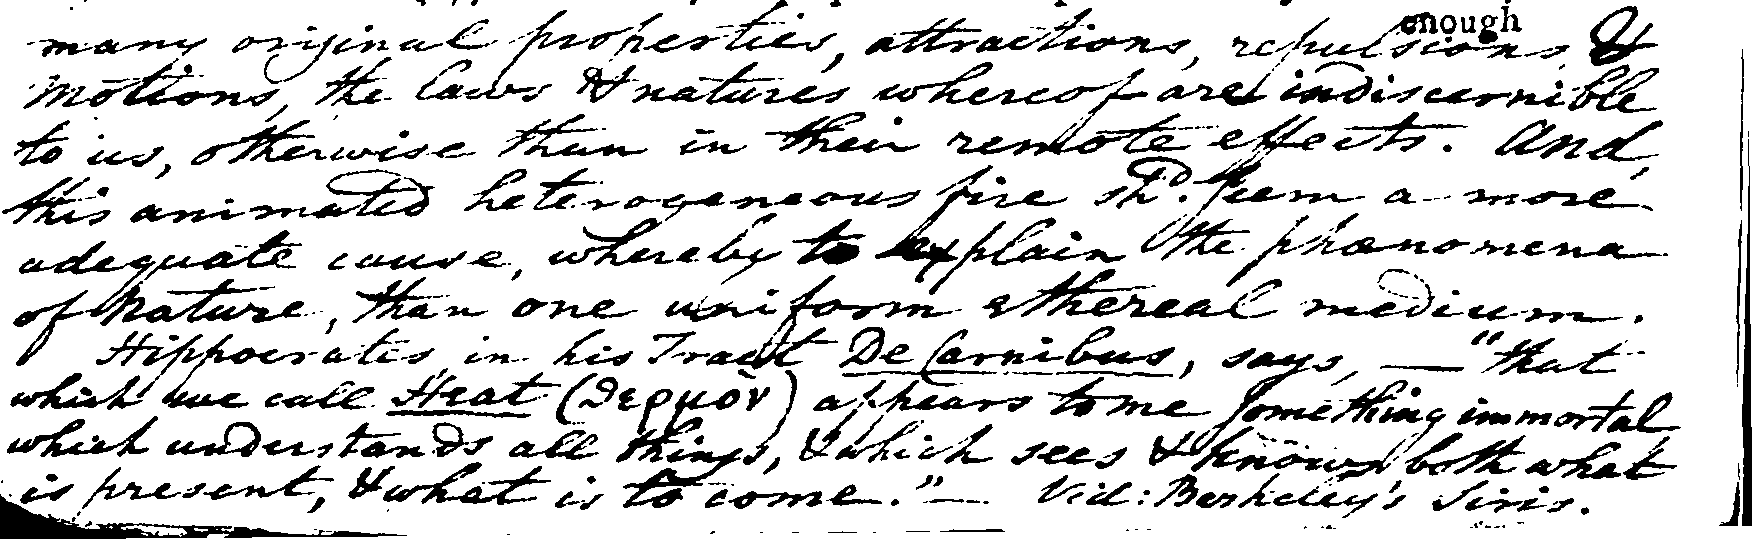 enough
many original properties, attractions, repulsions, &
motions, the laws & natures whereof are indiscernible
to us, otherwise than in their remote effects. And,
this animated heterogeneous fire shd. seem a more
adequate cause, whereby to explain the phænomena
of Nature, than one uniform ethereal medium.
Hippocrates, in his Tract De Carnibus, says, — "that
which we call Heat (θερμὸν) appears to me something immortal,
which understands all things, & which sees & knows both what
is present, & what is to come." — Vid: Berkeley's Siris.